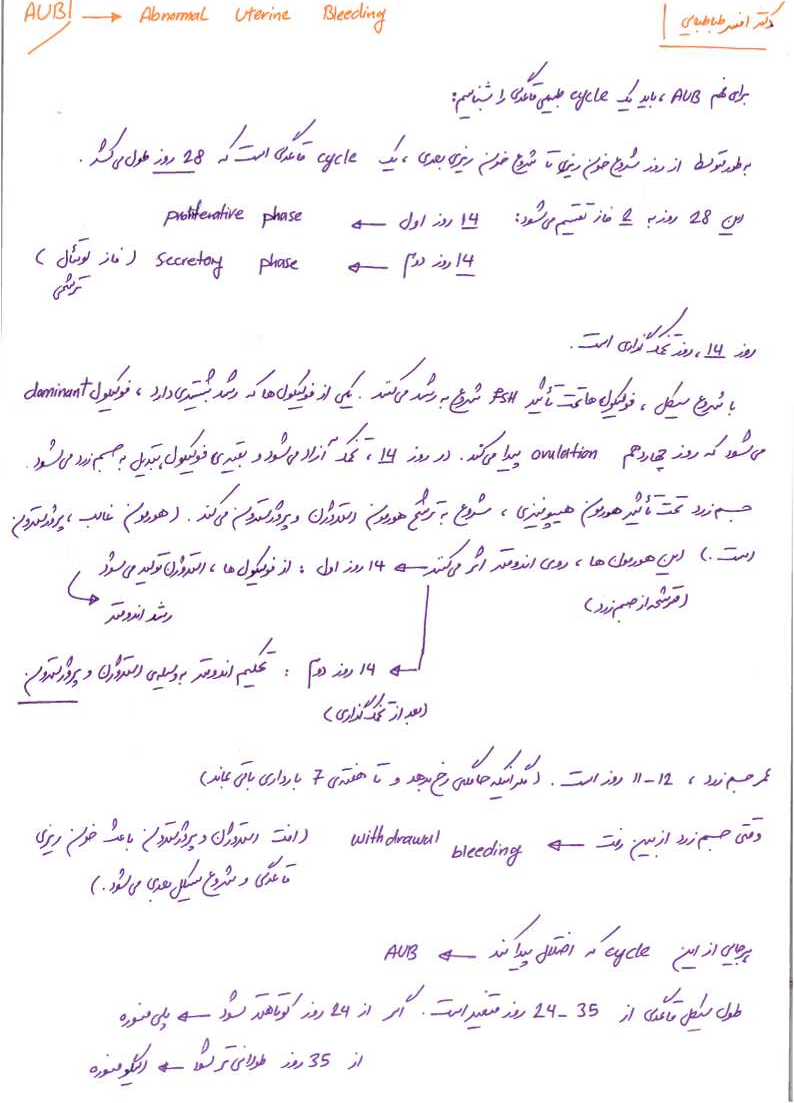 AUB → Abnormal Uterine Bleeding
دکتر افسر طباطبایی
برای فهم AUB، باید یک cycle طبیعی قاعدگی را بشناسیم:
به طور متوسط از روز شروع خون ریزی تا شروع خون ریزی بعدی، یک cycle قاعدگی است که 28 روز طول می‌کشد.
این 28 روز به 2 فاز تقسیم می‌شود: 14 روز اول ← proliferative phase
14 روز دوم ← secretory phase (فاز لوتئال)
ترشحی
روز 14، روز تخمک گذاری است.
با شروع سیکل، فولیکول ها تحت تأثیر FSH شروع به رشد می‌کنند. یکی از فولیکول ها که رشد بیشتری دارد، فولیکول dominant
می‌شود که روز چهاردهم ovulation پیدا می‌کند. در روز 14، تخمک آزاد می‌شود و بقیه‌ی فولیکول، تبدیل به جسم زرد می‌شود.
جسم زرد تحت تأثیر هورمون هیپوفیزی، شروع به ترشح هورمون استروژن و پروژسترون می‌کند. (هورمون غالب، پروژسترون
است.) این هورمون ها، روی اندومتر اثر می‌کنند ← 14 روز اول: از فولیکول ها، استروژن تولید می‌شود
(مترشحه از جسم زرد)
رشد اندومتر
← 14 روز دوم: تحکیم اندومتر به وسیله‌ی استروژن و پروژسترون
(بعد از تخمک گذاری)
عمر جسم زرد، 11-12 روز است. (مگر اینکه حاملگی رخ بدهد و تا هفته‌ی 7 بارداری باقی بماند)
وقتی جسم زرد از بین رفت ← withdrawal bleeding (افت استروژن و پروژسترون باعث خون ریزی
قاعدگی و شروع سیکل بعدی می‌شود.)
هر جایی از این cycle که اختلال پیدا کند ← AUB
طول سیکل قاعدگی از 24-35 روز متغیر است. اگر از 24 روز کوتاهتر شود ← پلی منوره
از 35 روز طولانی تر شود ← الیگومنوره